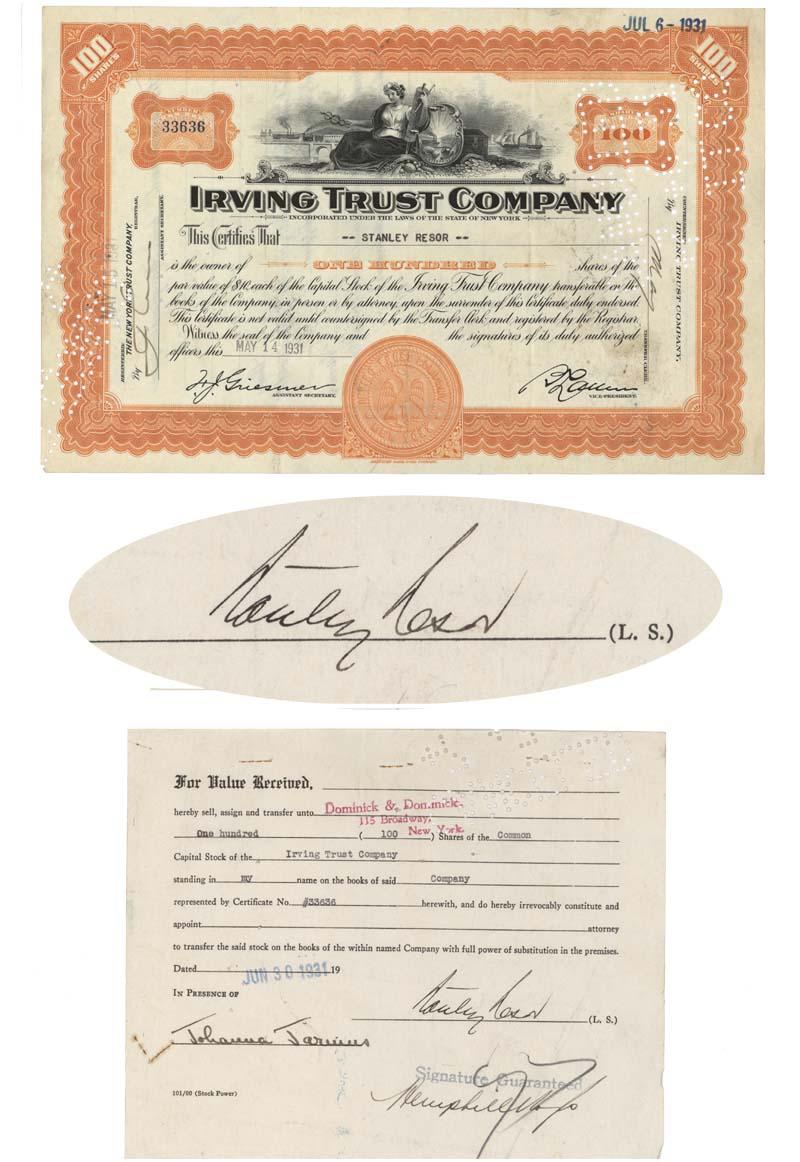 JUL 6 - 1931
100 SHARES
100 SHARES
NUMBER
33636
SHARES
100
IRVING TRUST COMPANY
INCORPORATED UNDER THE LAWS OF THE STATE OF NEW YORK
This Certifies That -- STANLEY RESOR --
is the owner of ONE HUNDRED shares of the
par value of $10. each of the Capital Stock of the Irving Trust Company transferable on the
books of the Company, in person or by attorney, upon the surrender of this Certificate duly endorsed.
This Certificate is not valid until countersigned by the Transfer Clerk and registered by the Registrar.
Witness the seal of the Company and the signatures of its duly authorized
officers this MAY 14 1931
ASSISTANT SECRETARY.
VICE-PRESIDENT.
REGISTERED:
THE NEW YORK TRUST COMPANY,
REGISTRAR,
By
ASSISTANT SECRETARY.
COUNTERSIGNED:
IRVING TRUST COMPANY,
By
TRANSFER CLERK.
Stanley Resor (L. S.)
For Value Received,
hereby sell, assign and transfer unto Dominick & Dominick,
115 Broadway,
New York
One hundred ( 100 ) Shares of the Common
Capital Stock of the Irving Trust Company
standing in my name on the books of said Company
represented by Certificate No. #33636 herewith, and do hereby irrevocably constitute and
appoint attorney
to transfer the said stock on the books of the within named Company with full power of substitution in the premises.
Dated JUN 30 1931 19
IN PRESENCE OF
Stanley Resor (L. S.)
Johanna
Signature Guaranteed
101/00 (Stock Power)